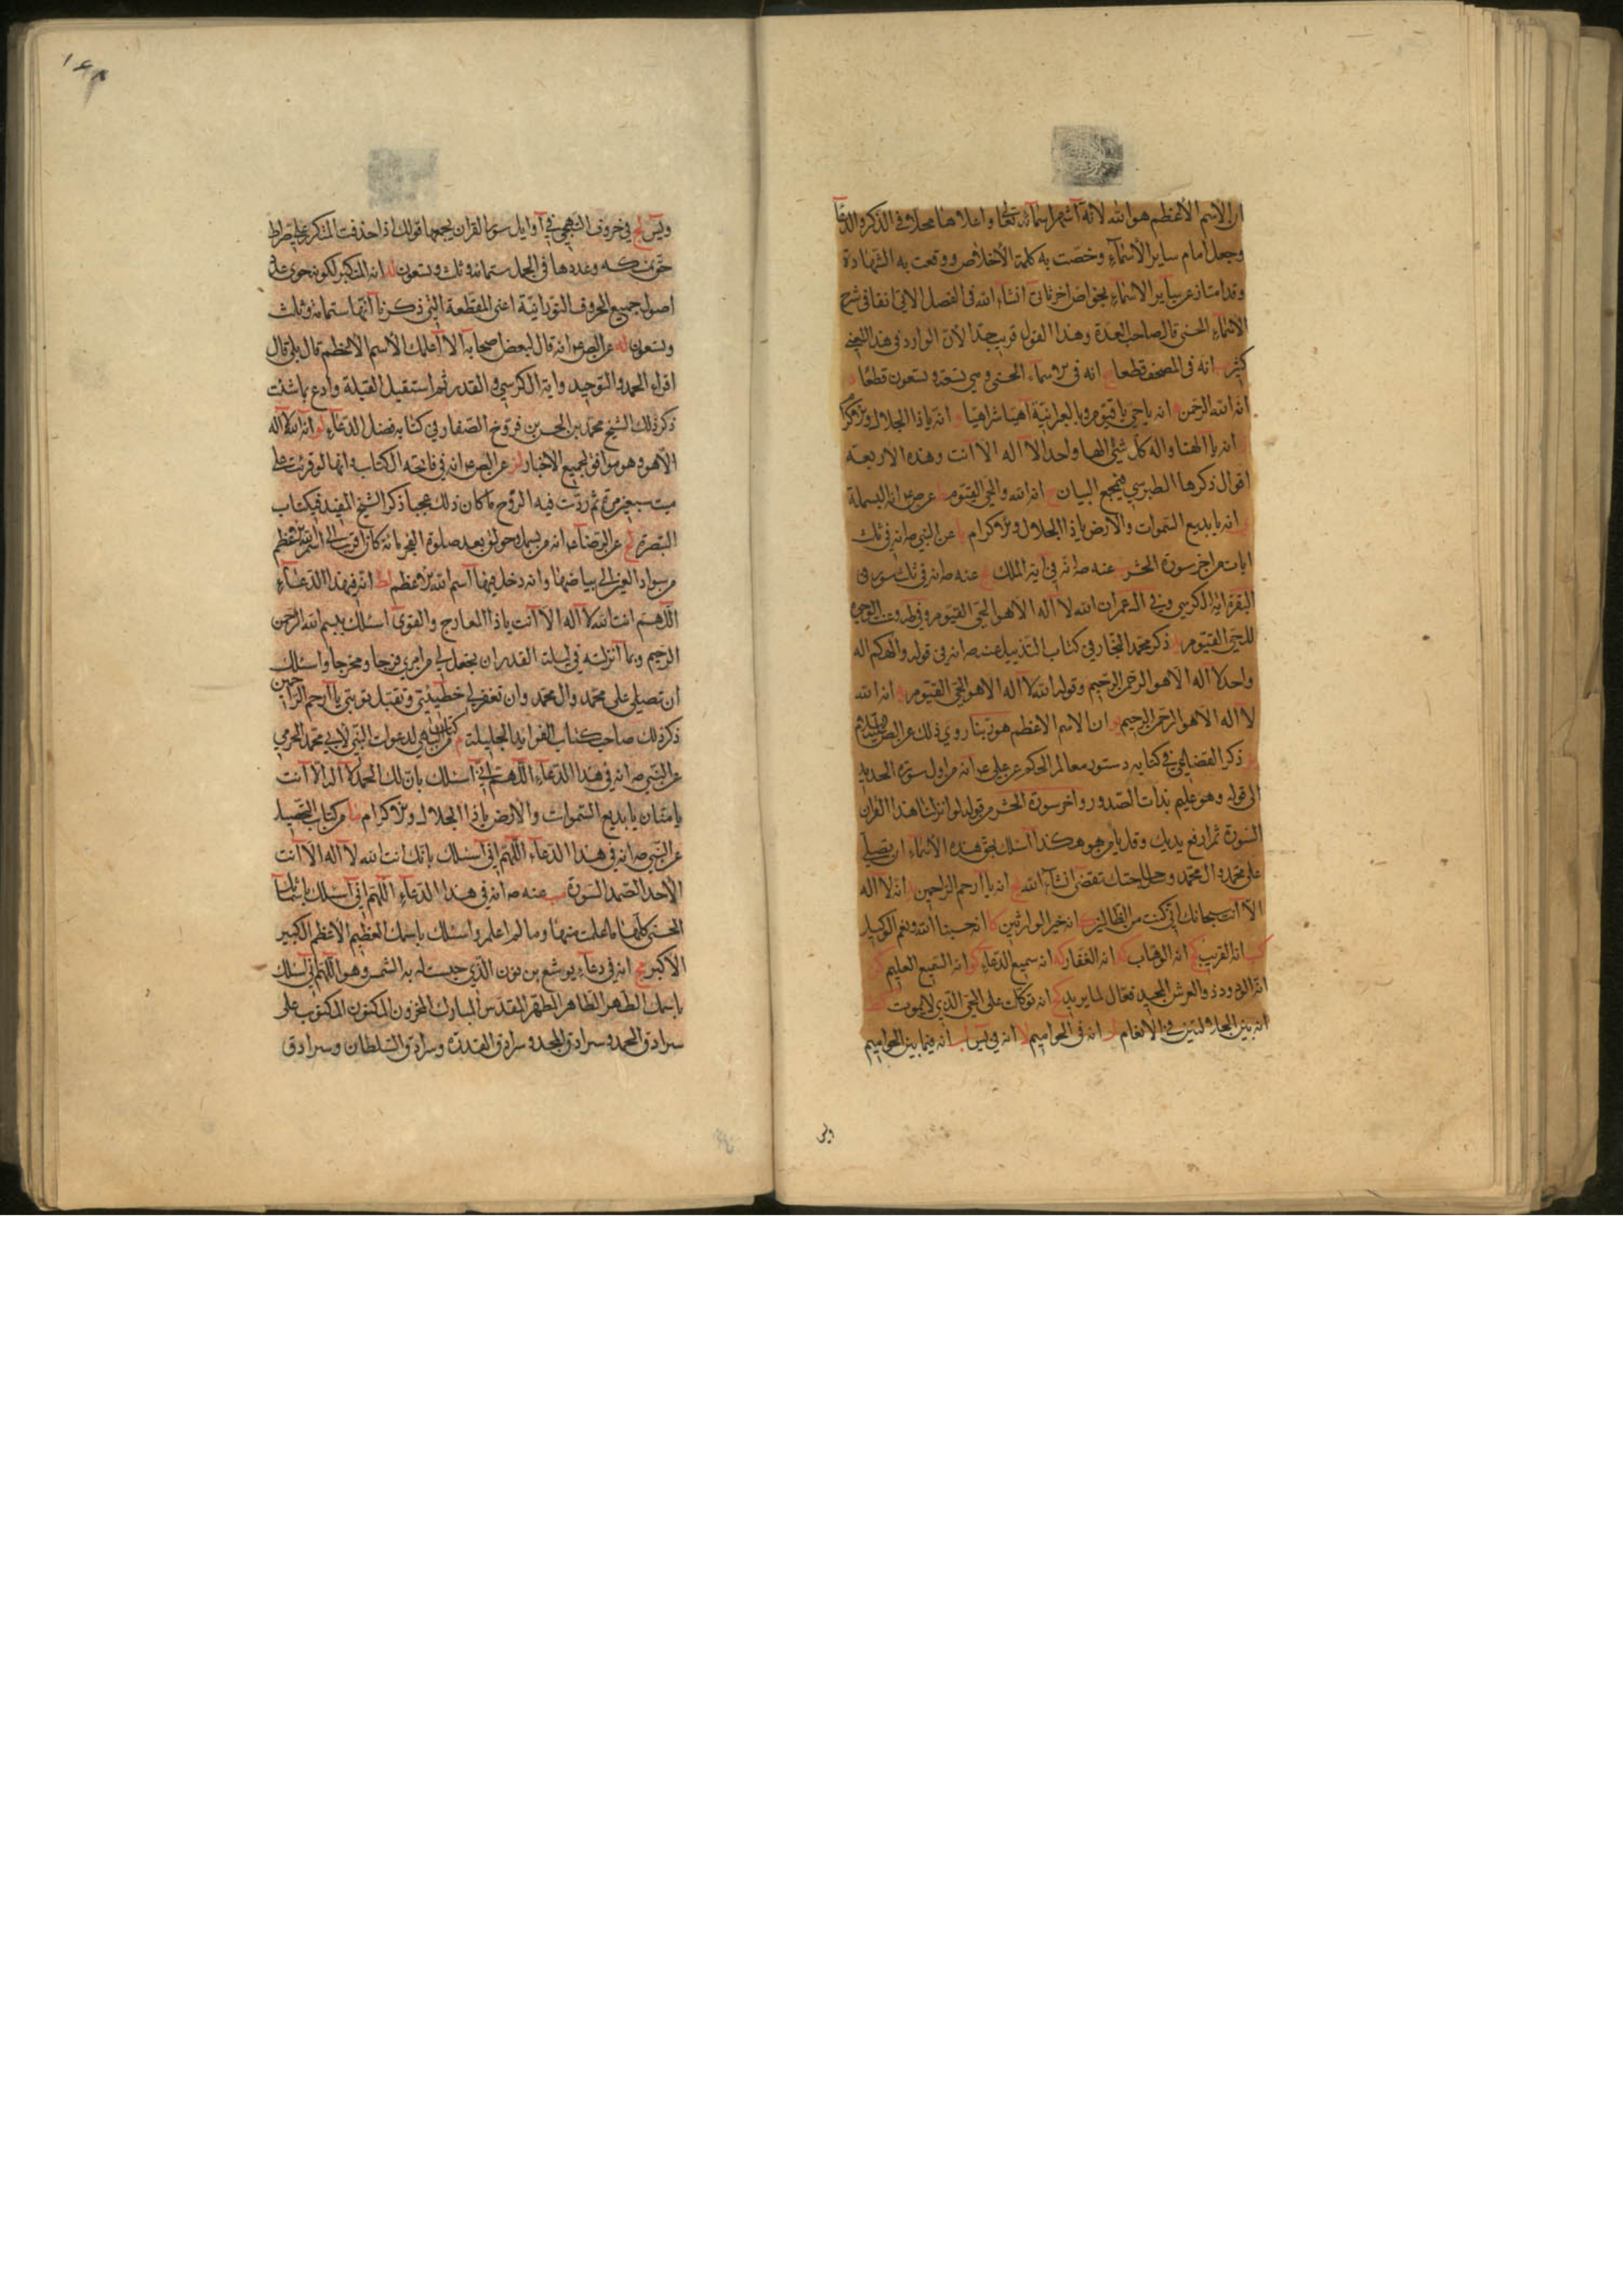 ان الاسم الأعظم هو الله لانه أشهر اسمائه تعالى واعلاها محلا في الذكر والدعاء
وجعل أمام ساير الأسماء وخصت به كلمة الأخلاص ووقعت به الشهادة
وقد امتاز عن ساير الاسماء بخواص اخر تاتى انشاء الله فى الفصل الاتى انفا فى شرح
الأسماء الحسنى قال صاحب العدة وهذا القول قريب جدا لأن الوارد في هذا المعنى
كثير ب انه فى المصحف قطعا ج انه فى الاسماء الحسنى وهي تسعة وتسعون قطعا د
انه الله الرحمن ه انه يا حي يا قيوم وبالعبرانية آهيا شراهيا و انه يا ذا الجلال والاكرام
ز انه يا الهنا واله كل شئ الها واحدا لا اله الا انت وهذه الاربعة
اقوال ذكرها الطبرسي في مجمع البيان ح انه الله والحي القيوم ط عن ص ع انه البسملة
ي انه يا بديع السموات والارض يا ذا الجلال والاكرام يا عن النبي ص انه فى ثلث
ايات من اخر سورة الحشر يب عنه ص انه في آية الملك يج عنه ص انه في ثلث سور في
البقرة اية الكرسي وفي ال عمران الله لا اله الا هو الحي القيوم وفي طه وعنت الوجوه
للحي القيوم يد ذكر محمد النجار في كتاب التذييل عنه ص انه فى قوله والهكم اله
واحد لا اله الا هو الرحمن الرحيم وقوله الله لا اله الا هو الحي القيوم يه انه الله
لا اله الا هو الرحمن الرحيم يو ان الاسم الاعظم هو ربنا روي ذلك عن
يز ذكر القضاعي في كتابه دستور معالم الحكم عن علي ع انه من اول سورة الحديد
الى قوله وهو عليم بذات الصدور واخر سورة الحشر من قوله لو انزلنا هذا القران
السورة ثم ارفع يديك وقل يا من هو هكذا أسئلك بحق هذه الأسماء ان تصلي
على محمد وال محمد وسل حاجتك تقضى انشاء الله يح انه يا ارحم الراحمين يط انه لا اله
الا انت سبحانك اني كنت من الظالمين ك انه خير الوارثين كا انه حسبنا الله ونعم الوكيل
كب انه القريب كج انه الوهاب كد انه الغفار كه انه سميع الدعاء كو انه السميع العليم كز
انه الودود ذو العرش المجيد فعال لما يريد كح انه توكلت على الحي الذي لا يموت كط
انه بين الجلالتين في الانعام ل انه فى الحواميم لا انه في يس لب انه فيما بين الحواميم
ويس
ويس لج في حروف التهجي في أوايل سور القران يجمعها قولك اذا حذفت المتكرر علي صراط
حق نمسكه وعددها في الجمل ستمائة وثلث وتسعون لد انه المتكبر لكونه حوى على
اصول جميع الحروف النورانية اعنى المقطعة التي ذكرنا انها ستمائة وثلث
وتسعون له عن الص ع انه قال لبعض اصحابه الا أعلمك الأسم الأعظم قال بلى قال
اقراء الحمد والتوحيد واية الكرسي والقدر ثم استقبل القبلة وادع بما شئت
ذكر ذلك الشيخ محمد بن الحسن بن فروخ الصفار في كتابه فضل الدعاء لو انه الله لا اله
الا هو وهو موافق لجميع الأخبار لز عن الص ع انه في فاتحة الكتاب وانها لو قرئت على
ميت سبعين مرة ثم ردت فيه الروح ما كان ذلك عجبا ذكر الشيخ المفيد في كتاب
التبصرة لح عن الرضا ع انه من بسمل وحولق بعد صلوة الفجر مائة كان اقرب الى اسم الله الاعظم
من سواد العين الى بياضها وانه دخل فيها اسم الله الاعظم لط انه في هذا الدعاء
اللهم انت الله لا اله الا انت يا ذا المعارج والقوى اسئلك ببسم الله الرحمن
الرحيم وبما أنزلته في ليلة القدر ان تجعل لي من امري فرجا ومخرجا واسئلك
ان تصلي على محمد وال محمد وان تغفر لي خطيئتي وتقبل توبتي يا أرحم الراحمين
ذكر ذلك صاحب كتاب الفوايد الجليلة م من كتاب الدعوات لأبي محمد الحرمي
عن النبي ص انه في هذا الدعاء اللهم اني أسئلك بان لك الحمد لا اله الا انت
يا منان يا بديع السموات والارض يا ذا الجلال والاكرام ما من كتاب التحصيل
عن النبي ص انه في هذا الدعاء اللهم اني أسئلك بانك انت الله لا اله الا انت
الأحد الصمد السورة مب عنه ص انه في هذا الدعاء اللهم اني أسئلك باسمائك
الحسنى كلها ما علمت منها وما لم اعلم واسئلك باسمك العظيم الأعظم الكبير
الأكبر مج انه في دعاء يوشع بن نون الذي حبست له به الشمس وهو اللهم اني اسئلك
باسمك الطهر الطاهر المطهر المقدس المبارك المخزون المكنون المكتوب على
سرادق الحمد وسرادق المجد وسرادق القدرة وسرادق السلطان وسرادق